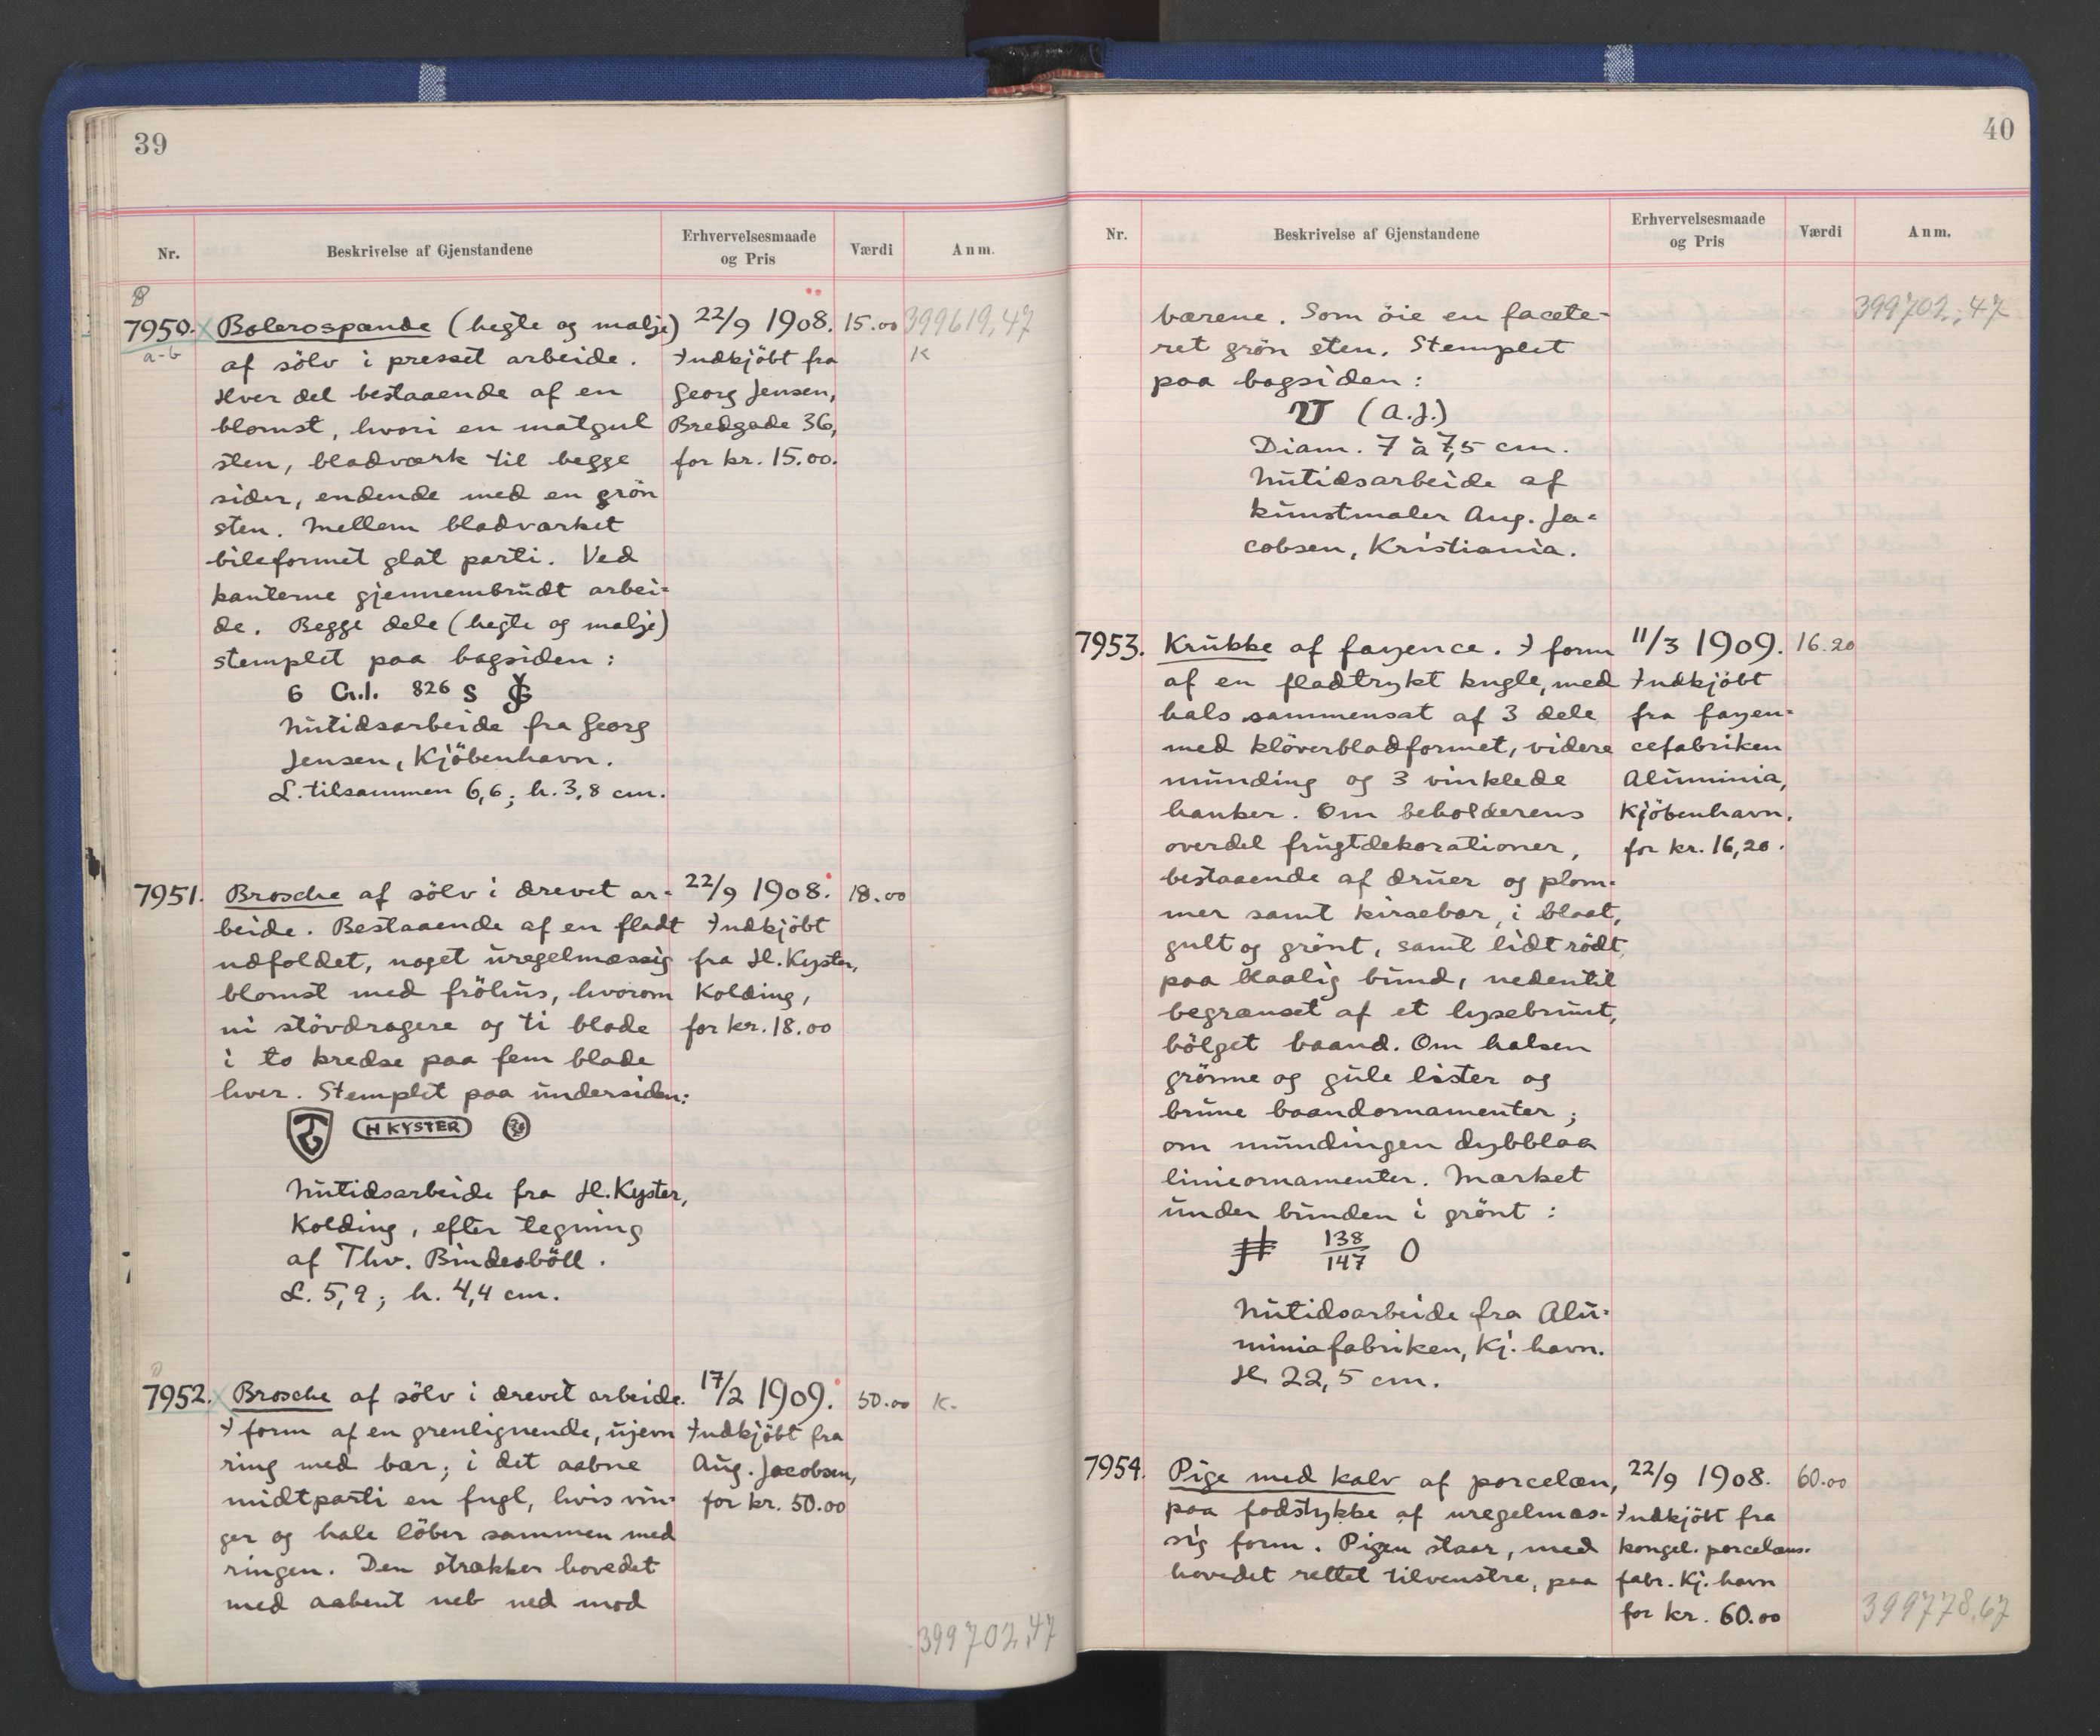 39
Nr.
Beskrivelse af Gjenstandene
Erhvervelsesmaade
og Pris
Værdi
Anm.
7950. Bolerospænde (hegte og malje) 22/9 1908. 15.00 399619,47
a-b af sölv i presset arbeide. Indkjöbt fra K
Hver del bestaaende af en Georg Jensen,
blomst, hvori en matgul Bredgade 36,
sten, bladværk til begge for kr. 15.00.
sider, endende med en grön
sten. Mellem bladværket
bileformet glat parti. Ved
kanterne gjennembrudt arbei-
de. Begge dele (hegte og malje)
stemplet paa bagsiden:
6 G.I. 826 S GJ
Nutidsarbeide fra Georg
Jensen, Kjöbenhavn.
L. tilsammen 6,6; h. 3,8 cm.
7951. Brosche af sölv i drevet ar- 22/9 1908. 18.00
beide. Bestaaende af en fladt Indkjöbt
udfoldet, noget uregelmæssig fra H. Kyster,
blomst med fröhus, hvorom Kolding,
ni stövdragere og ti blade for kr. 18.00
i to kredse paa fem blade
hver. Stemplet paa undersiden:
H KYSTER
Nutidsarbeide fra H. Kyster,
Kolding, efter tegning
af Thv. Bindesböll.
L. 5,9; h. 4,4 cm.
7952. Brosche af sölv i drevet arbeide. 17/2 1909. 50.00 K.
I form af en grenlignende, ujevn Indkjöbt fra
ring med bær; i det aabne Aug. Jacobsen,
midtparti en fugl, hvis vin- for kr. 50.00
ger og hale löber sammen med
ringen. Den strækker hovedet
med aabent neb ned mod
399702,47
40
Nr.
Beskrivelse af Gjenstandene
Erhvervelsesmaade
og Pris
Værdi
Anm.
399702,47
bærene. Som öie en facete-
ret grön sten. Stemplet
paa bagsiden:
(A.J.)
Diam. 7 à 7,5 cm.
Nutidsarbeide af
kunstmaler Aug. Ja-
cobsen, Kristiania.
7953. Krukke af fayence. I form 11/3 1909. 16.20
af en fladtrykt kugle, med Indkjöbt
hals sammensat af 3 dele fra fayen-
med klöverbladformet, videre cefabriken
munding og 3 vinklede Aluminia,
hanker. Om beholderens Kjöbenhavn.
overdel frugtdekorationer, for kr. 16,20.
bestaaende af druer og plom-
mer samt kirsebær, i blaat,
gult og grönt, samt lidt rödt,
paa blaalig bund, nedentil
begrænset af et lysebrunt,
bölget baand. Om halsen
grönne og gule lister og
brune baandornamenter;
om mundingen dybblaa
linieornamenter. Mærket
under bunden i grönt:
138
147 O
Nutidsarbeide fra Alu-
miniafabriken, Kj. havn.
H. 22,5 cm.
7954. Pige med kalv af porcelæn, 22/9 1908. 60.00
paa fodstykke af uregelmæs- Indkjöbt fra
sig form. Pigen staar, med kongel. porcelæns-
hovedet rettet tilvenstre, paa fabr. Kj. havn
for kr. 60.00
399778,67